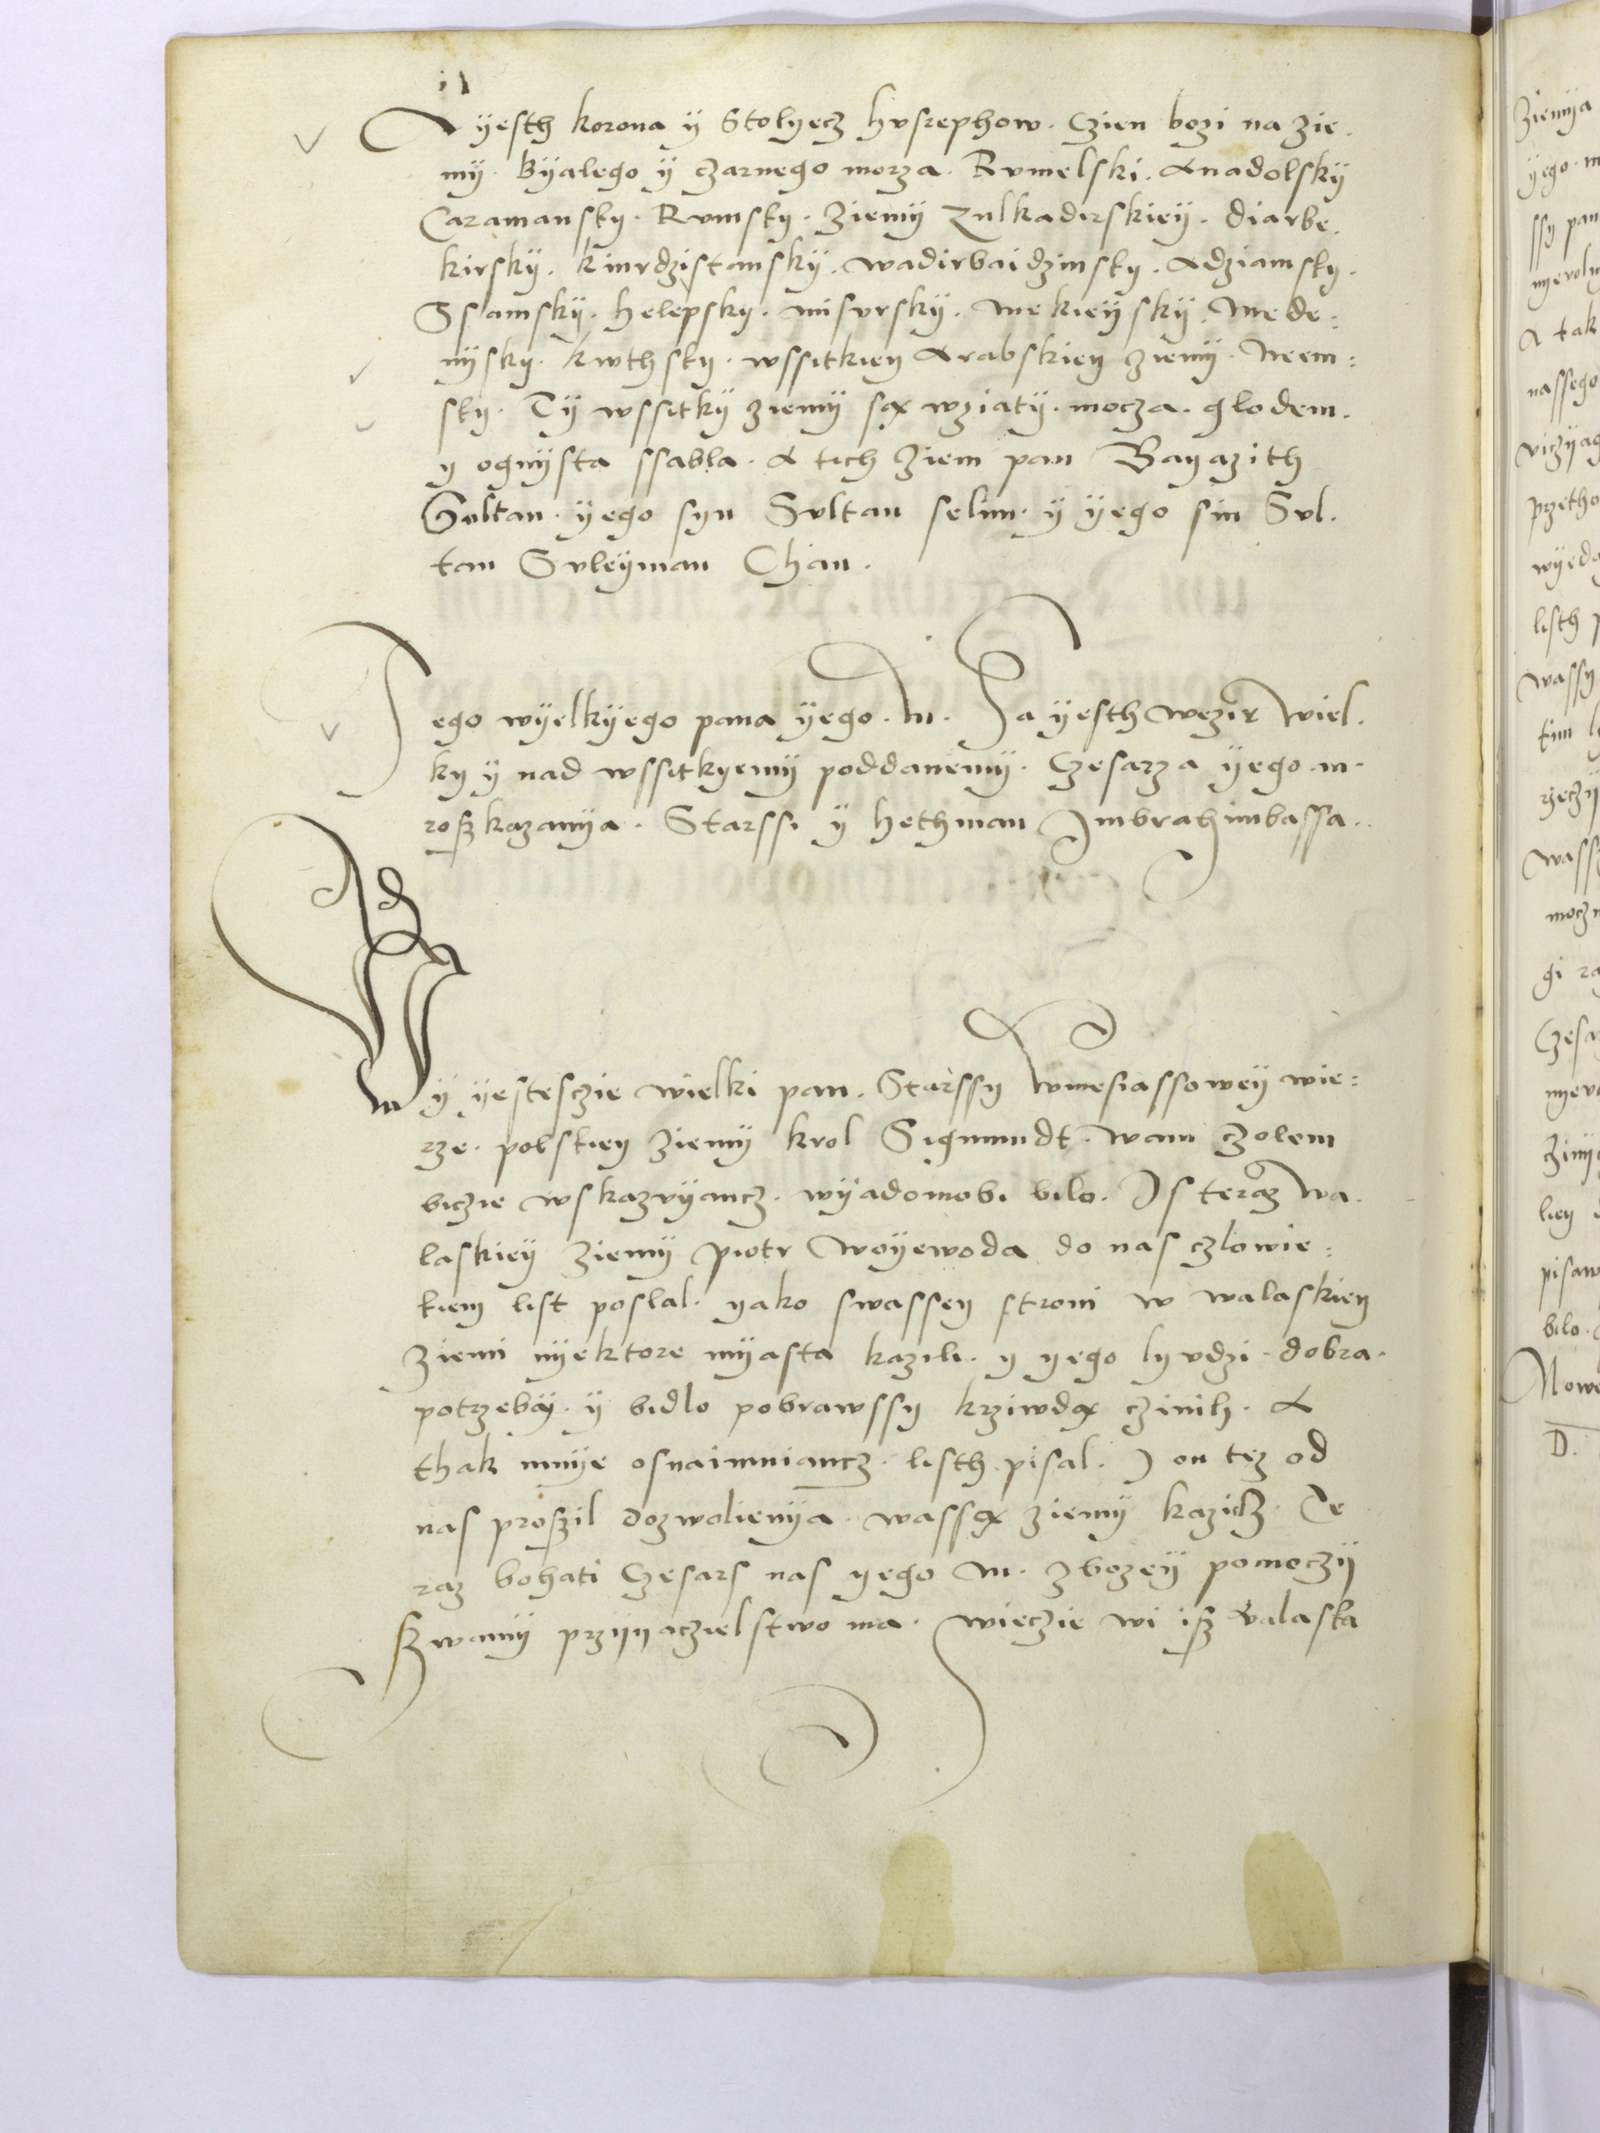 A yesth korona y Stolyecz hvsrephow. Czien bozi na zie.
my. Byalego y czarnego morza. Rvmelski. Anadolsky
Caramansky. Rvmsky. ziemy Zulkadirskiey. diarbe.
kirsky. kinrdzistansky. wadirbaidzinsky. Adziamsky.
Ssamsky. helepsky. misvrsky. mekieysky. mede:
nysky. kwthsky. wssitkiey Arabskiey ziemy. Neem:
sky. Ty wssitky ziemy są wziaty. mocza. glodem.
y ognysta ssabla. A tich ziem pan Bayazith
Sultan. yego syn Svltan selim. y yego sin Svl.
tan Svleyman Chan.
Jego wyelkyego pana yego. M. Ja yesth wezir wiel.
ky y nad wssitkyemy poddanemy. Czesarza yego. m.
roszkazanya. Starssi y hethman Imbrahimbassa.
Wy yestesczie wielki pan. Starssy wmesiassowey wie:
rze. polskiey ziemy krol Sigmundt. wam czolem
biczie wskazvyancz. wyadomobi bilo. Is teraz wa.
laskiey ziemy piotr woyewoda do nas czlowie:
kiem list poslal. yako swassey stroni w walaskiey
ziemi nyektore myasta kazili. y yego lyvdzi. dobra.
potrzeby. y bidlo pobrawssy krziwdą czinili. A
thak mnye osnaimniancz. listh pisal. I on tez od
nas proszil dozwolienya. wassą ziemy kazicz. Te
raz bohati Czesars nas yego M. zbozey pomoczy
szwamy przyyaczielstwo ma. wieczie wi isz valaska
ziemya
yego. m
ssy pan
A tak
nassego
przetho
listh
wassy
rzeczy
gi
Czesa
pisaw
bilo.
D.